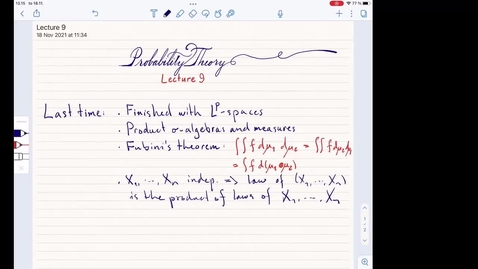 13.15 to 18.11.
77 %
Lecture 9
18 Nov 2021 at 11:34
Probability Theory
Lecture 9
Last time: · Finished with Lᵖ-spaces
· Product σ-algebras and measures
· Fubini's theorem: ∫∫ f dμ₁ dμ₂ = ∫∫ f dμ₂ dμ₁
= ∫ f d(μ₁⊗μ₂)
· X₁, ..., Xₙ indep. => law of (X₁, ..., Xₙ)
is the product of laws of X₁, ..., Xₙ